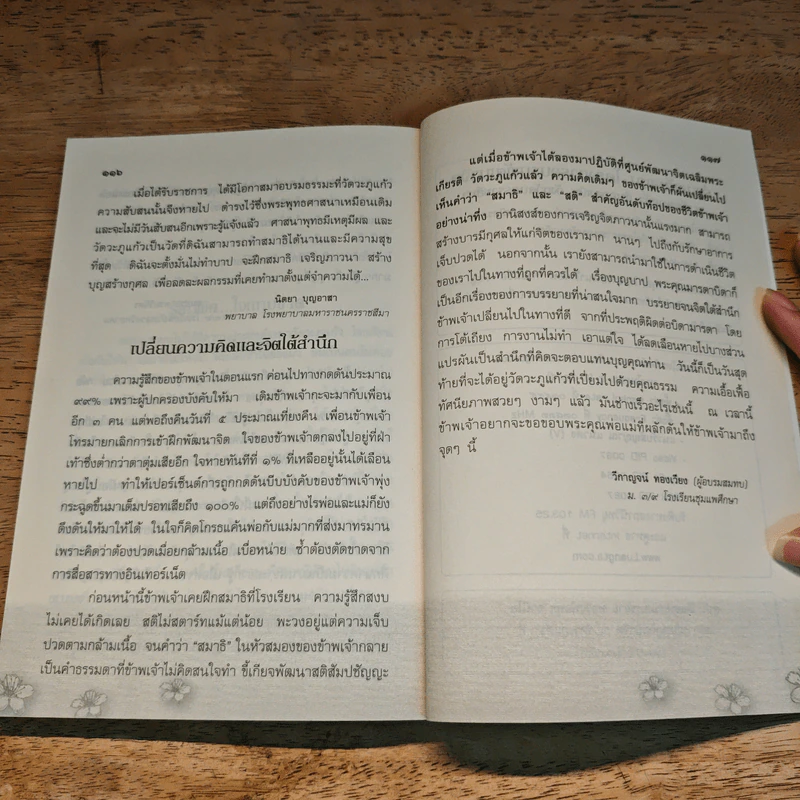 ๑๑๖
เมื่อได้รับราชการ ได้มีโอกาสมาอบรมธรรมะที่วัดวะภูแก้ว
ความสับสนนั้นจึงหายไป ดำรงไว้ซึ่งพระพุทธศาสนาเหมือนเดิม
และจะไม่มีวันสับสนอีกเพราะรู้แจ้งแล้ว ศาสนาพุทธมีเหตุมีผล และ
วัดวะภูแก้วเป็นวัดที่ดิฉันสามารถทำสมาธิได้นานและมีความสุข
ที่สุด ดิฉันจะตั้งมั่นไม่ทำบาป จะฝึกสมาธิ เจริญภาวนา สร้าง
บุญสร้างกุศล เพื่อลดละผลกรรมที่เคยทำมาตั้งแต่จำความได้...
นิตยา บุญอาสา
พยาบาล โรงพยาบาลมหาราชนครราชสีมา
เปลี่ยนความคิดและจิตใต้สำนึก
ความรู้สึกของข้าพเจ้าในตอนแรก ค่อนไปทางกดดันประมาณ
๙๙% เพราะผู้ปกครองบังคับให้มา เดิมข้าพเจ้ากะจะมากับเพื่อน
อีก ๓ คน แต่พอถึงคืนวันที่ ๕ ประมาณเที่ยงคืน เพื่อนข้าพเจ้า
โทรมายกเลิกการเข้าฝึกพัฒนาจิต ใจของข้าพเจ้าตกลงไปอยู่ที่ฝ่า
เท้าซึ่งต่ำกว่าตาตุ่มเสียอีก ใจหายทันทีที่ ๑% ที่เหลืออยู่นั้นได้เลือน
หายไป ทำให้เปอร์เซ็นต์การถูกกดดันบีบบังคับของข้าพเจ้าพุ่ง
กระฉูดขึ้นมาเต็มปรอทเสียถึง ๑๐๐% แต่ถึงอย่างไรพ่อและแม่ก็ยัง
ดึงดันให้มาให้ได้ ในใจก็คิดโกรธแค้นพ่อกับแม่มากที่ส่งมาทรมาน
เพราะคิดว่าต้องปวดเมื่อยกล้ามเนื้อ เบื่อหน่าย ซ้ำต้องตัดขาดจาก
การสื่อสารทางอินเทอร์เน็ต
ก่อนหน้านี้ข้าพเจ้าเคยฝึกสมาธิที่โรงเรียน ความรู้สึกสงบ
ไม่เคยได้เกิดเลย สติไม่สตาร์ทแม้แต่น้อย พะวงอยู่แต่ความเจ็บ
ปวดตามกล้ามเนื้อ จนคำว่า “สมาธิ” ในหัวสมองของข้าพเจ้ากลาย
เป็นคำธรรมดาที่ข้าพเจ้าไม่คิดสนใจทำ ขี้เกียจพัฒนาสติสัมปชัญญะ
๑๑๗
แต่เมื่อข้าพเจ้าได้ลองมาปฏิบัติที่ศูนย์พัฒนาจิตเฉลิมพระ
เกียรติ วัดวะภูแก้วแล้ว ความคิดเดิมๆ ของข้าพเจ้าก็ผันเปลี่ยนไป
เห็นคำว่า “สมาธิ” และ “สติ” สำคัญอันดับท็อปของชีวิตข้าพเจ้า
อย่างน่าทึ่ง อานิสงส์ของการเจริญจิตภาวนานั้นแรงมาก สามารถ
สร้างบารมีกุศลให้แก่จิตของเรามาก นานๆ ไปถึงกับรักษาอาการ
เจ็บปวดได้ นอกจากนั้น เรายังสามารถนำมาใช้ในการดำเนินชีวิต
ของเราไปในทางที่ถูกที่ควรได้ เรื่องบุญบาป พระคุณมารดาบิดาก็
เป็นอีกเรื่องของการบรรยายที่น่าสนใจมาก บรรยายจนจิตใต้สำนึก
ข้าพเจ้าเปลี่ยนไปในทางที่ดี จากที่ประพฤติผิดต่อบิดามารดา โดย
การโต้เถียง การงานไม่ทำ เอาแต่ใจ ได้ลดเลือนหายไปบางส่วน
แปรผันเป็นสำนึกที่คิดจะตอบแทนบุญคุณท่าน วันนี้ก็เป็นวันสุด
ท้ายที่จะได้อยู่วัดวะภูแก้วที่เปี่ยมไปด้วยคุณธรรม ความเอื้อเฟื้อ
ทัศนียภาพสวยๆ งามๆ แล้ว มันช่างเร็วอะไรเช่นนี้ ณ เวลานี้
ข้าพเจ้าอยากจะขอขอบพระคุณพ่อแม่ที่ผลักดันให้ข้าพเจ้ามาถึง
จุดๆ นี้
วิกาญจน์ ทองเวียง (ผู้อบรมสมทบ)
ม. ๓/๙ โรงเรียนชุมแพศึกษา